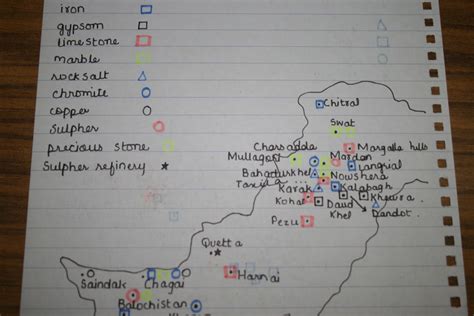 iron
gypsom
limestone
marble
rocksalt
chromite
copper
Sulpher
precious stone
Sulpher refinery
Chitral
Swat
Charsadda
Margalla hills
Mullagori
Mardan
Langrial
Bahadurkhel
Nowshera
Taxila
Karak
Kalabagh
Kohat
Khewra
Daud
Khel
Dandot
Pezu
Quetta
Harnai
Saindak
Chagai
Balochistan